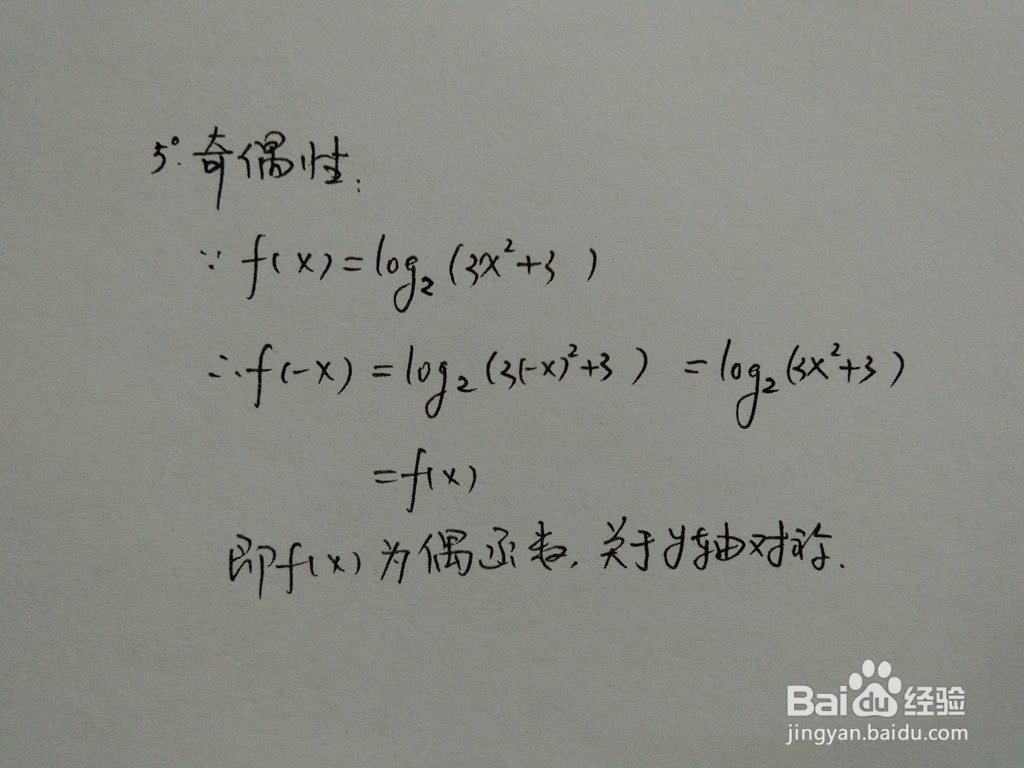 5°. 奇偶性:
∵ f(x)=log₂(3x²+3)
∴f(-x)=log₂(3(-x)²+3) =log₂(3x²+3)
=f(x)
即f(x)为偶函数,关于y轴对称.
Bai du 经验
jingyan.baidu.com